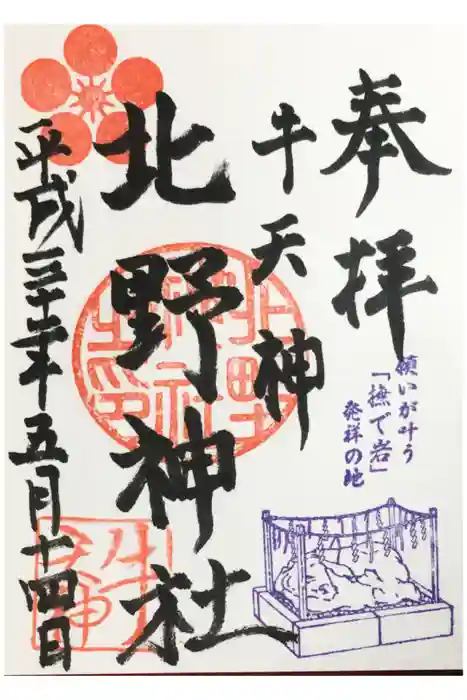 奉拝
願いが叶う
「撫で岩」
発祥の地
牛天神
北野神社
平成三十年五月十四日
北野
神社
之印
牛
天神